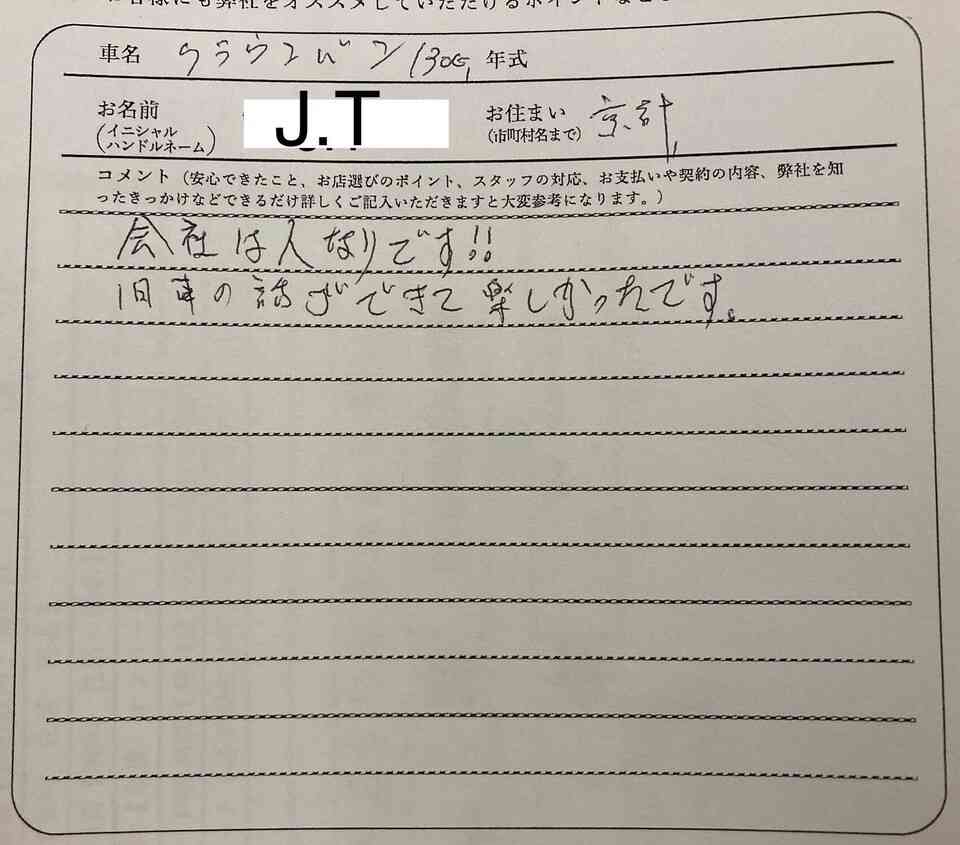 客様にも弊社をオススメしていただけるポイントなどし
車名 クラウンバン 130G, 年式
お名前 J.T お住まい 京
(イニシャル (市町村名まで)
ハンドルネーム)
コメント (安心できたこと、お店選びのポイント、スタッフの対応、お支払いや契約の内容、弊社を知
ったきっかけなどできるだけ詳しくご記入いただきますと大変参考になります。)
会社は人なりです!!
旧車の話ができて楽しかったです。